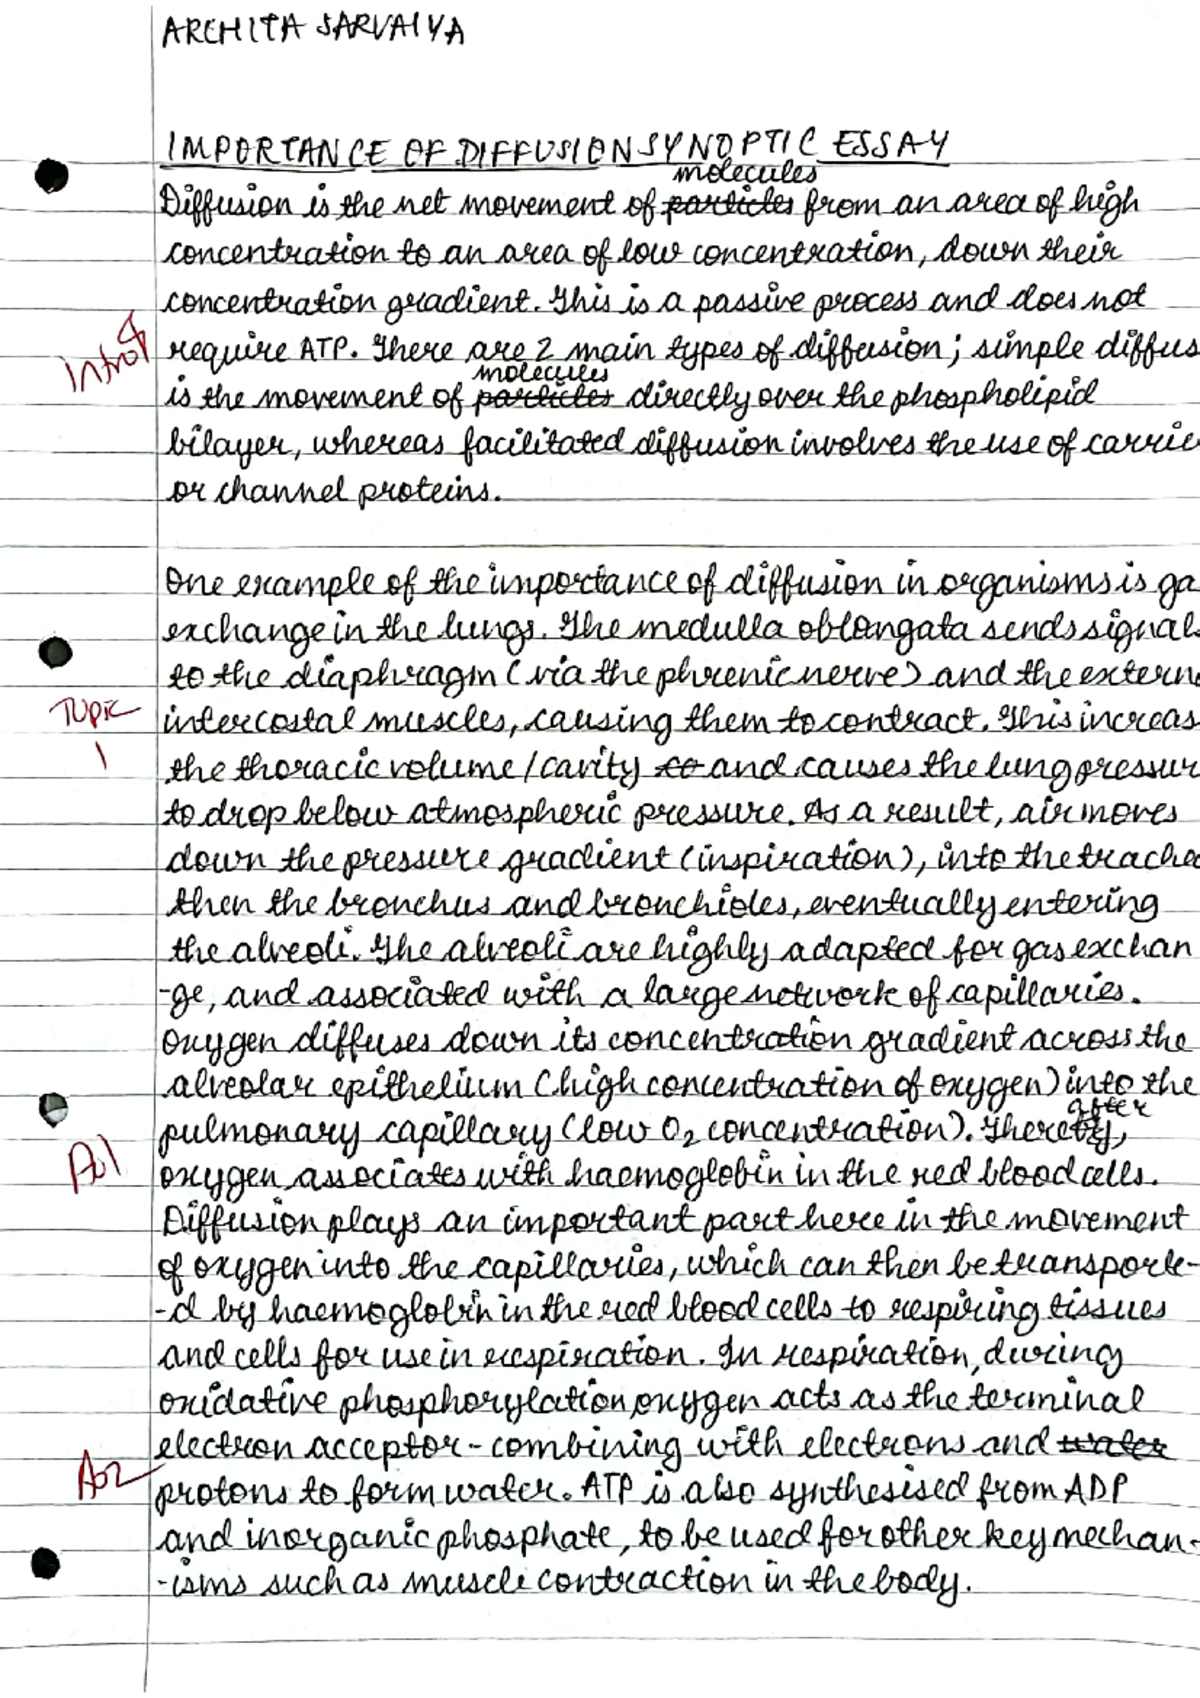 ARCHITA SARVAIYA
IMPORTANCE OF DIFFUSION SYNOPTIC ESSAY
molecules
Diffusion is the net movement of particles from an area of high
concentration to an area of low concentration, down their
concentration gradient. This is a passive process and does not
Intro
require ATP. There are 2 main types of diffusion; simple diffus
molecules
is the movement of particles directly over the phospholipid
bilayer, whereas facilitated diffusion involves the use of carrie
or channel proteins.
One example of the importance of diffusion in organisms is ga
exchange in the lungs. The medulla oblongata sends signals
to the diaphragm (via the phrenic nerve) and the extern
Topic
1
intercostal muscles, causing them to contract. This increas
the thoracic volume/cavity to and causes the lung pressur
to drop below atmospheric pressure. As a result, air moves
down the pressure gradient (inspiration), into the trachea
then the bronchus and bronchioles, eventually entering
the alveoli. The alveoli are highly adapted for gas exchan
-ge, and associated with a large network of capillaries.
Oxygen diffuses down its concentration gradient across the
alveolar epithelium (high concentration of oxygen) into the
after
pulmonary capillary (low O2 concentration). Thereby,
AO1
oxygen associates with haemoglobin in the red blood cells.
Diffusion plays an important part here in the movement
of oxygen into the capillaries, which can then be transporte-
-d by haemoglobin in the red blood cells to respiring tissues
and cells for use in respiration. In respiration, during
oxidative phosphorylation, oxygen acts as the terminal
electron acceptor - combining with electrons and water
AO2
protons to form water. ATP is also synthesised from ADP
and inorganic phosphate, to be used for other key mechan-
-isms such as muscle contraction in the body.